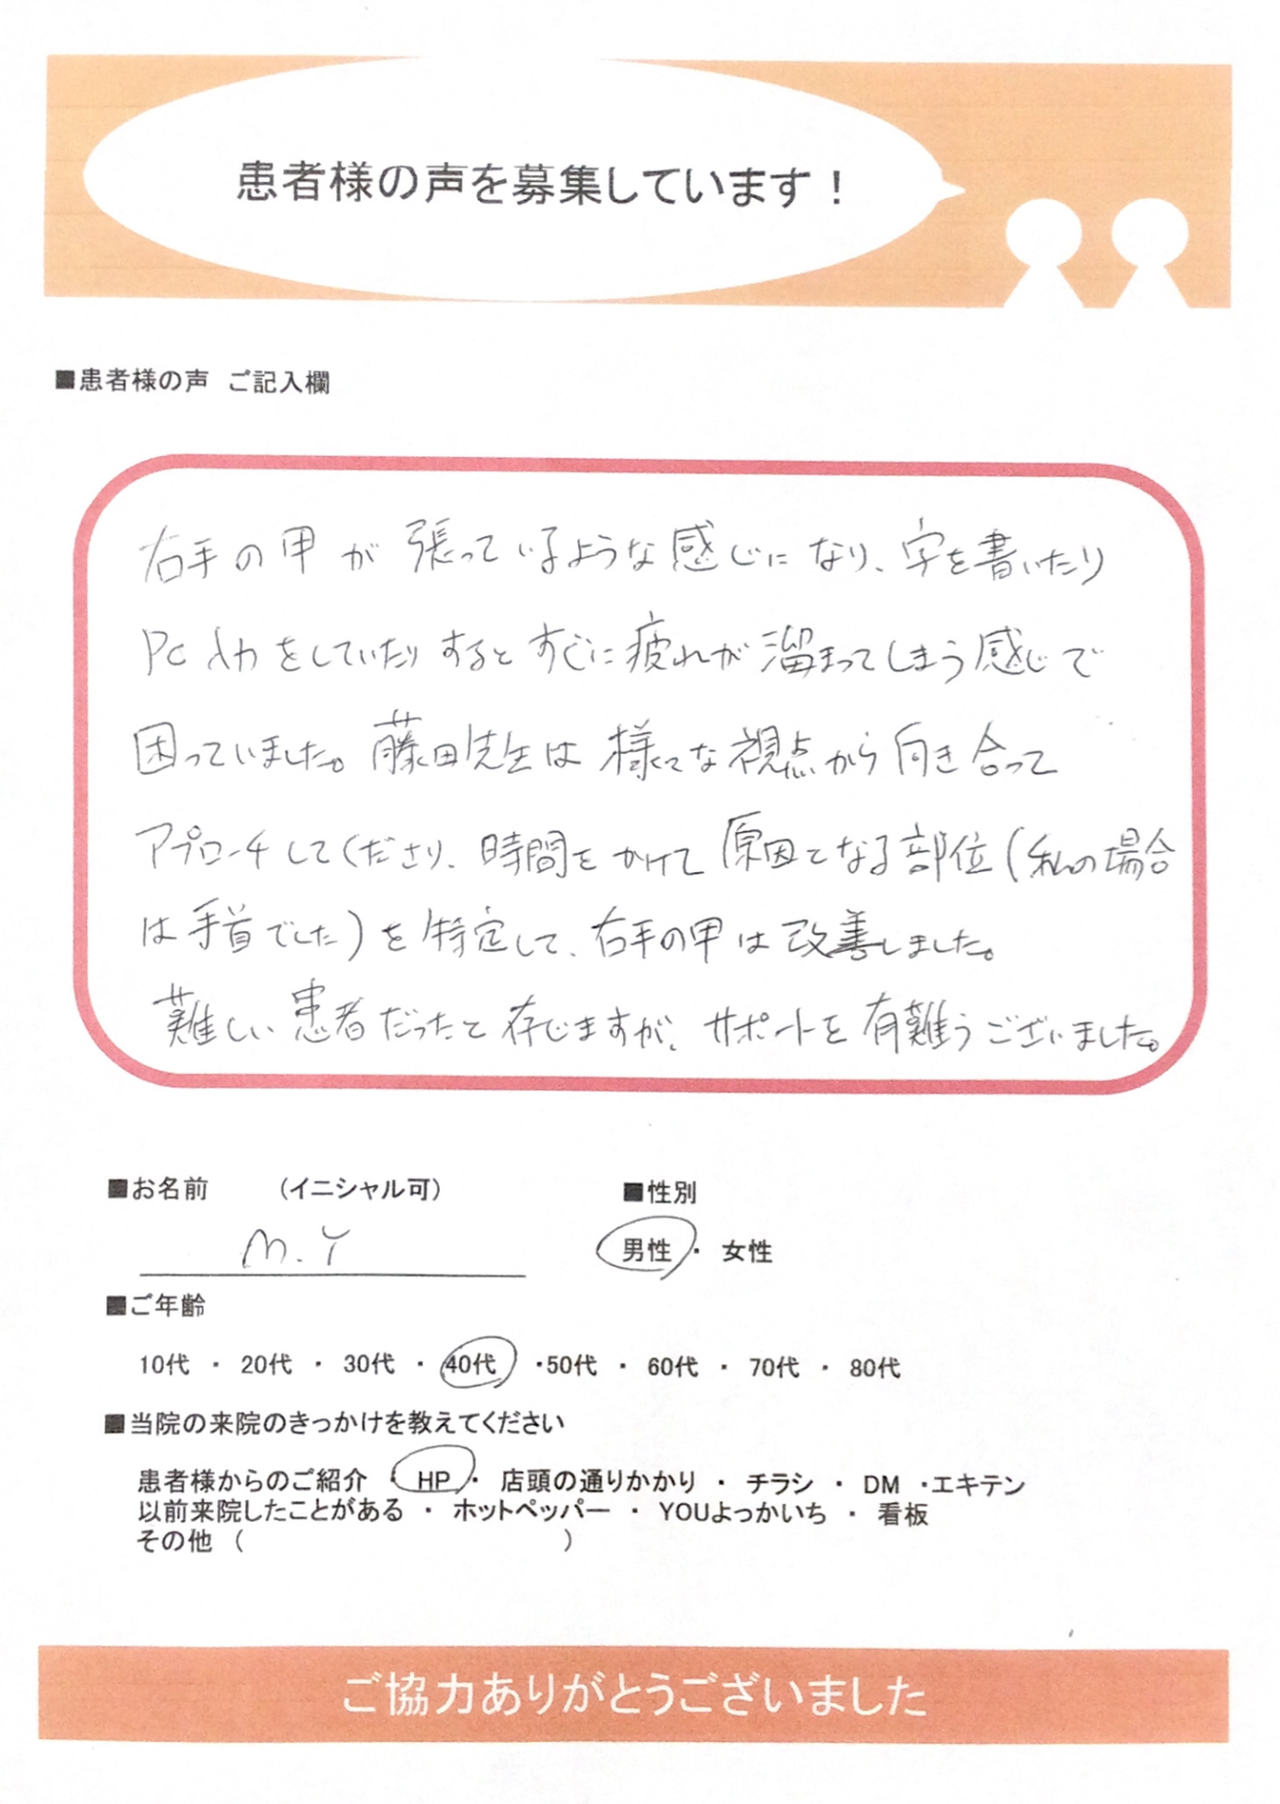 患者様の声を募集しています！
■患者様の声　ご記入欄
右手の甲が張っているような感じになり、字を書いたり
PC入力をしていたりするとすぐに疲れが溜まってしまう感じで
困っていました。藤田先生は様々な視点から向き合って
アプローチしてくださり、時間をかけて原因となる部位(私の場合
は手首でした)を特定して、右手の甲は改善しました。
難しい患者だったと存じますが、サポートを有難うございました。
■お名前　　（イニシャル可）　　■性別
M.Y　　男性・女性
■ご年齢
10代 ・ 20代 ・ 30代 ・ 40代 ・50代 ・ 60代 ・ 70代 ・ 80代
■当院の来院のきっかけを教えてください
患者様からのご紹介 ・ HP ・ 店頭の通りかかり ・ チラシ ・ DM ・エキテン
以前来院したことがある ・ ホットペッパー ・ YOUよっかいち ・ 看板
その他（　　　　　　　　　　）
ご協力ありがとうございました